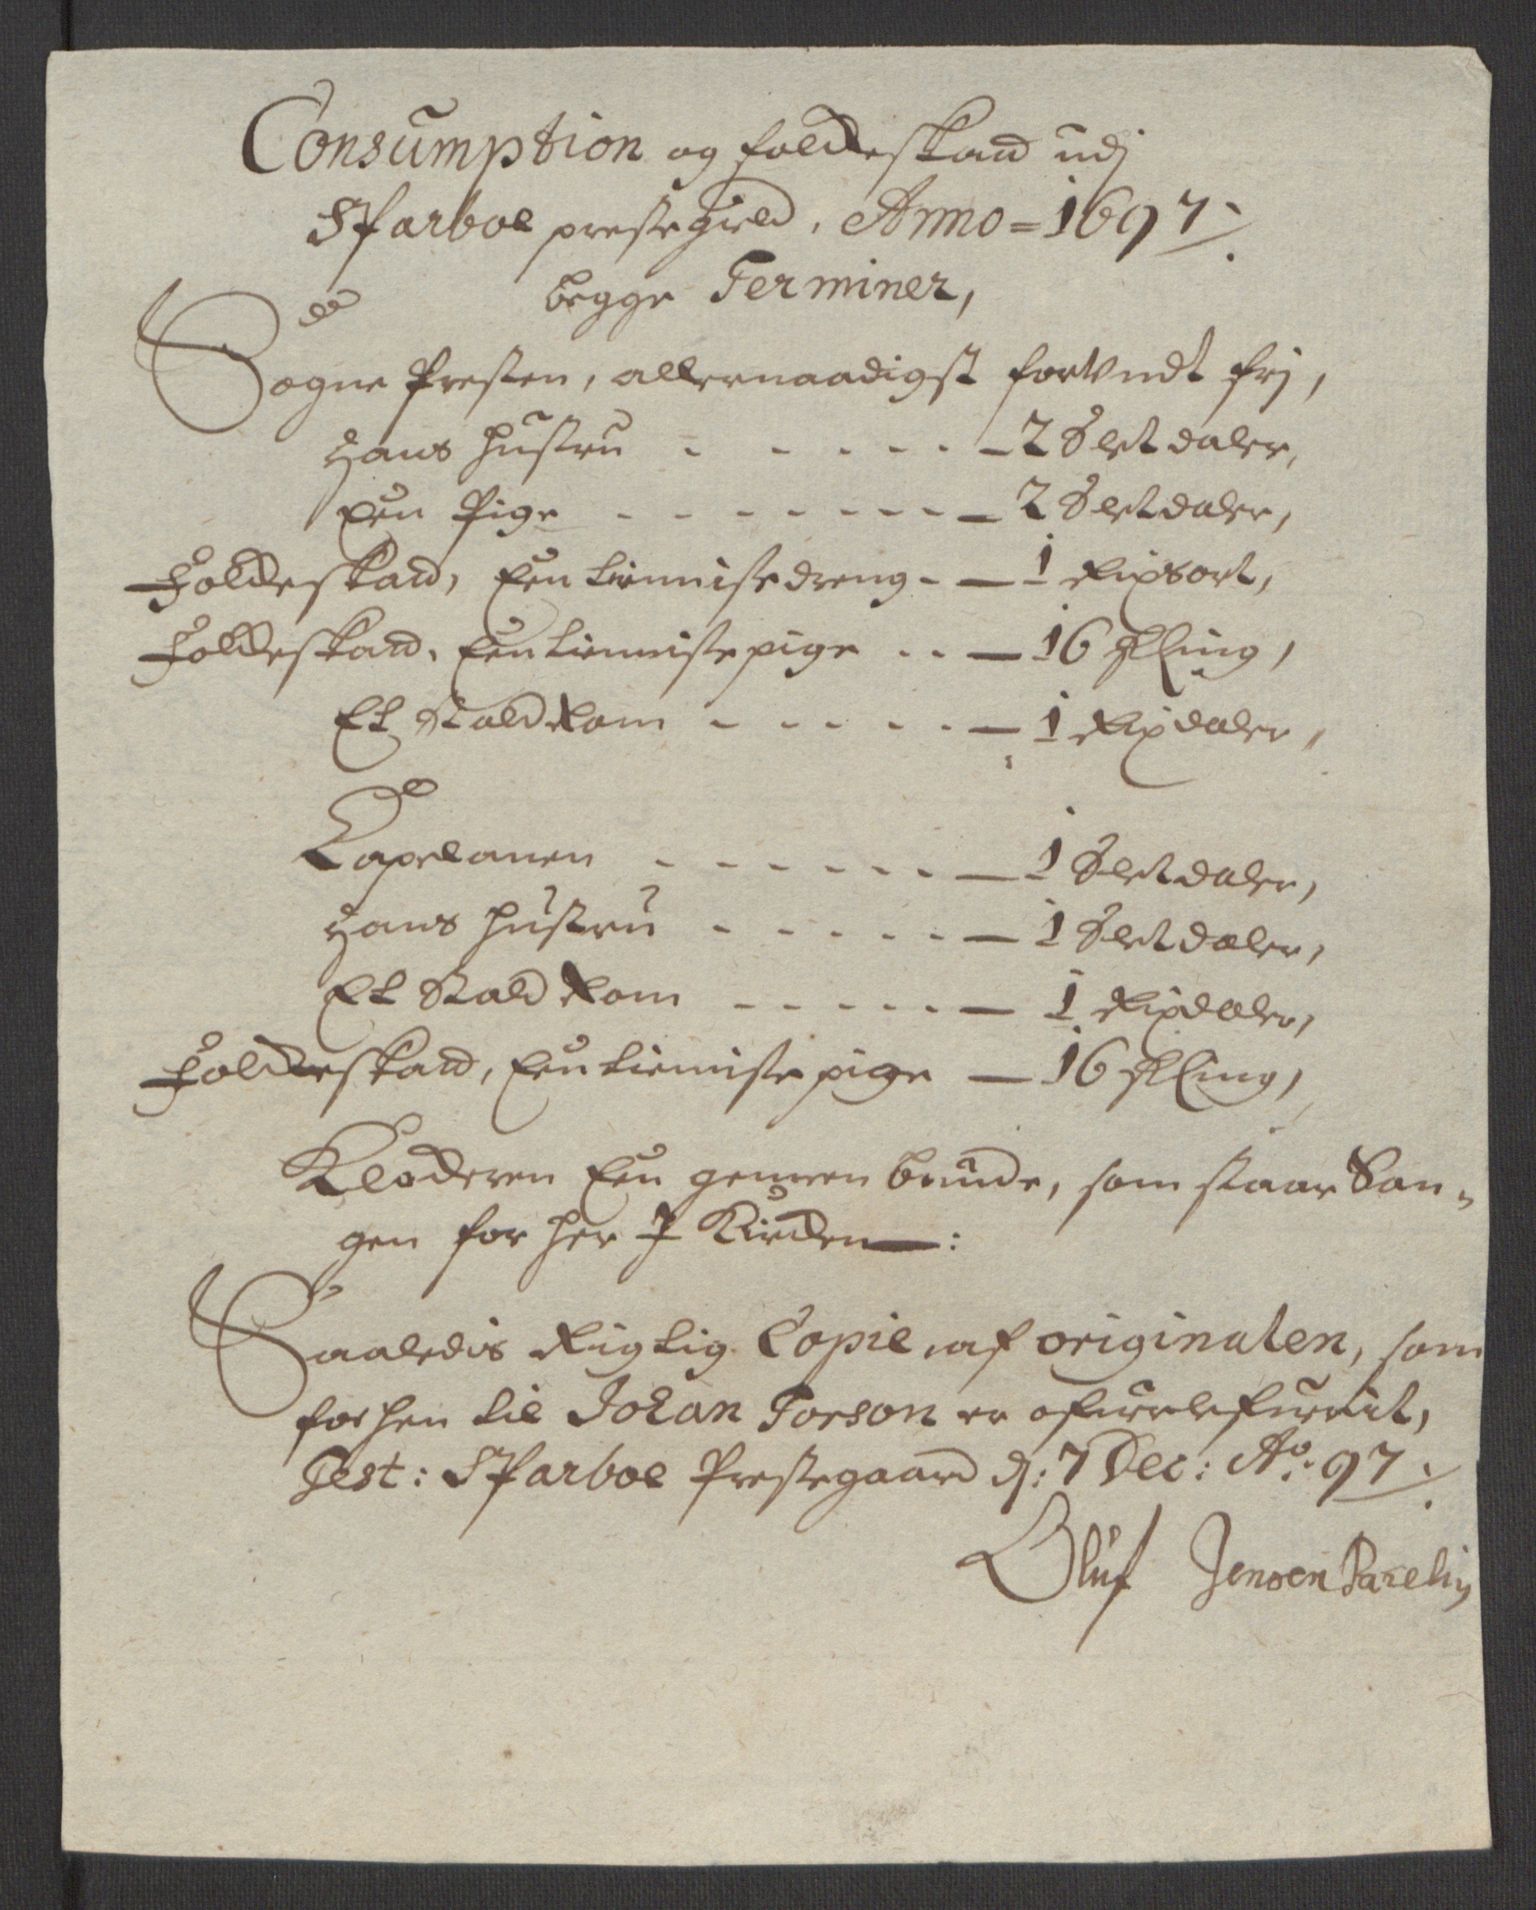 Consumption og folckeskatt udj
Sparboe prestegield, Anno = 1697 /.
begge Terminer,
Sogne Presten, allernaadigst forundt frj,
Hans Hustru - - - - - - 2 Sletdaler,
Een Pige - - - - - - - - 2 Sletdaler,
Folckeskatt, Een tienniste dreng - - 1 Rixsort,
Folckeskatt, Een tienniste pige - - - 16 skling,
Et Staldrom - - - - - - 1 Rixdaler,
Capelanen - - - - - - - 1 Sletdaler,
Hans Hustru - - - - - - 1 Sletdaler,
Et Staldrom - - - - - - 1 Rixdaler,
Folckeskatt, Een tienniste pige - 16 skling,
Klockeren Een gemeen bunde, som staar San-
gen for her J Kircken :
Saaledis Rigtig Copie af originalen, som
forhen til Johan Torson er
Test: Sparboe Prestegaard d: 7 Dec: Ao: 97 /.
Oluf Jensen Parelių